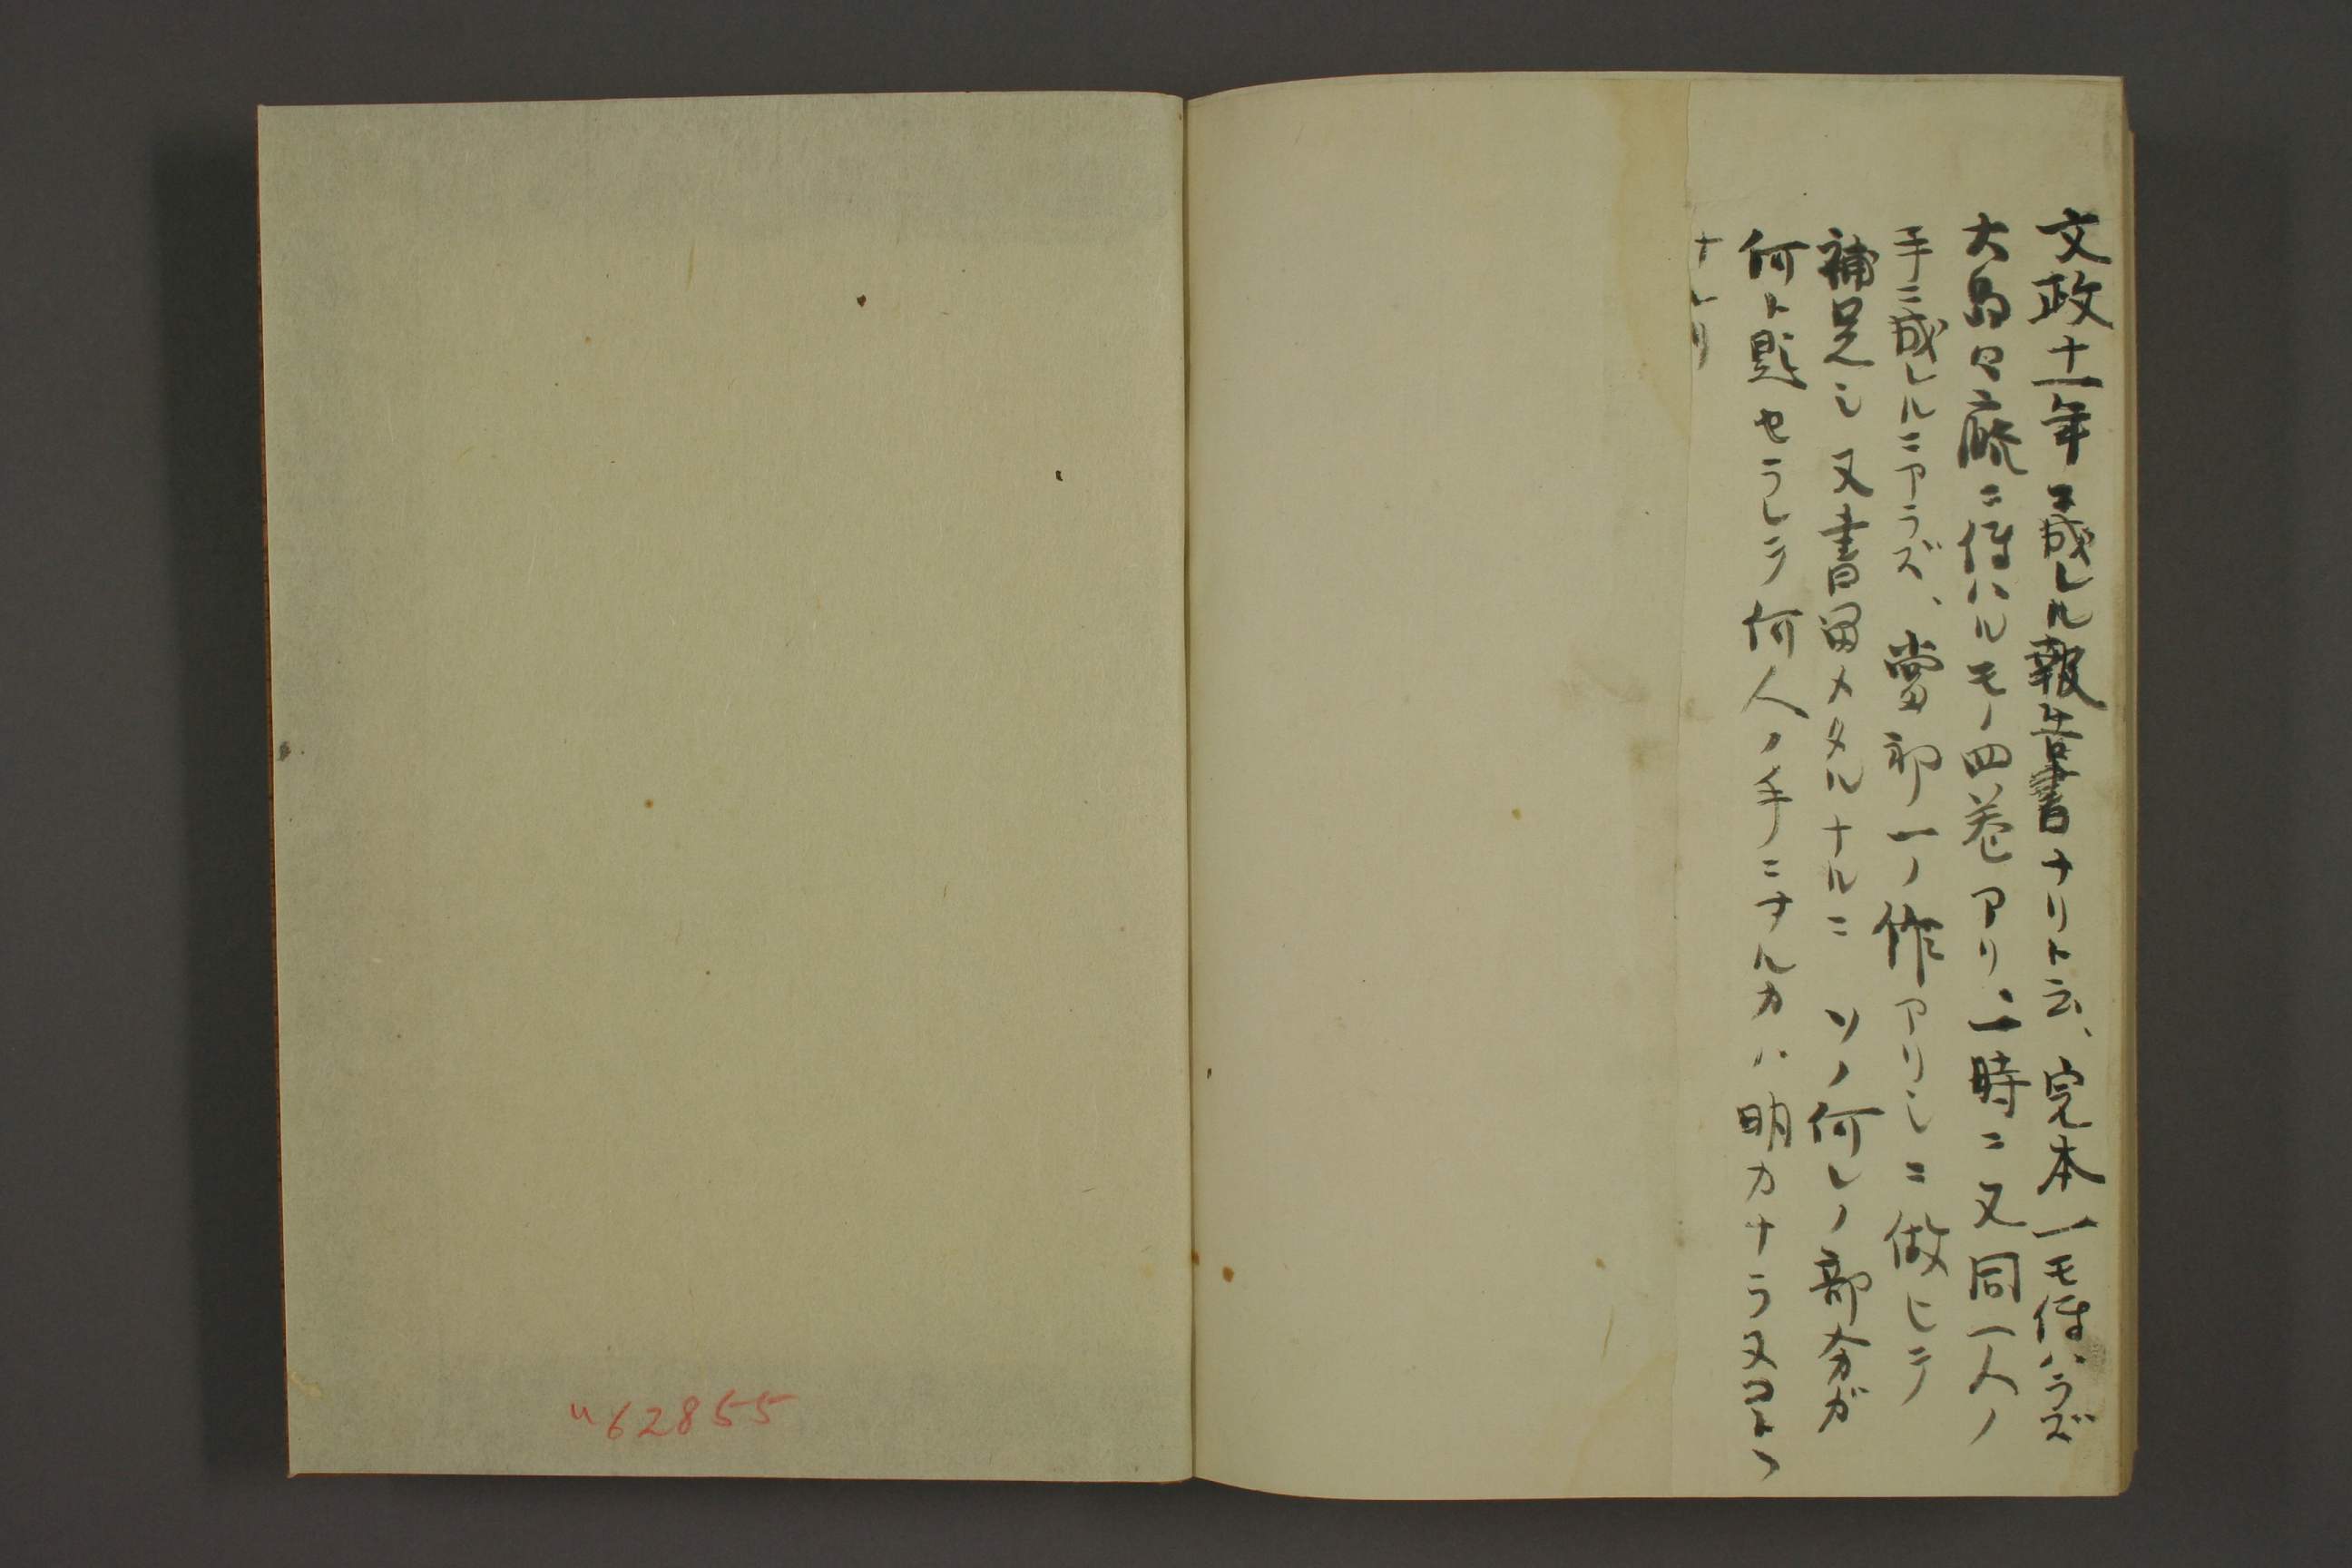 文政十一年ニ成レル報告書ナリト云、完本一モ伝ハラズ
大島支庁ニ伝ハルモノ四巻アリ、一時ニ又同一人ノ
手ニ成レルニアラズ、当初一ノ作アリシニ倣ヒテ
補足シ又書留メタルナルニ ソノ何レノ部分ガ
何ト題セラレテ何人ノ手ニナルカハ明カナラヌコト丶
ナレリ
62855